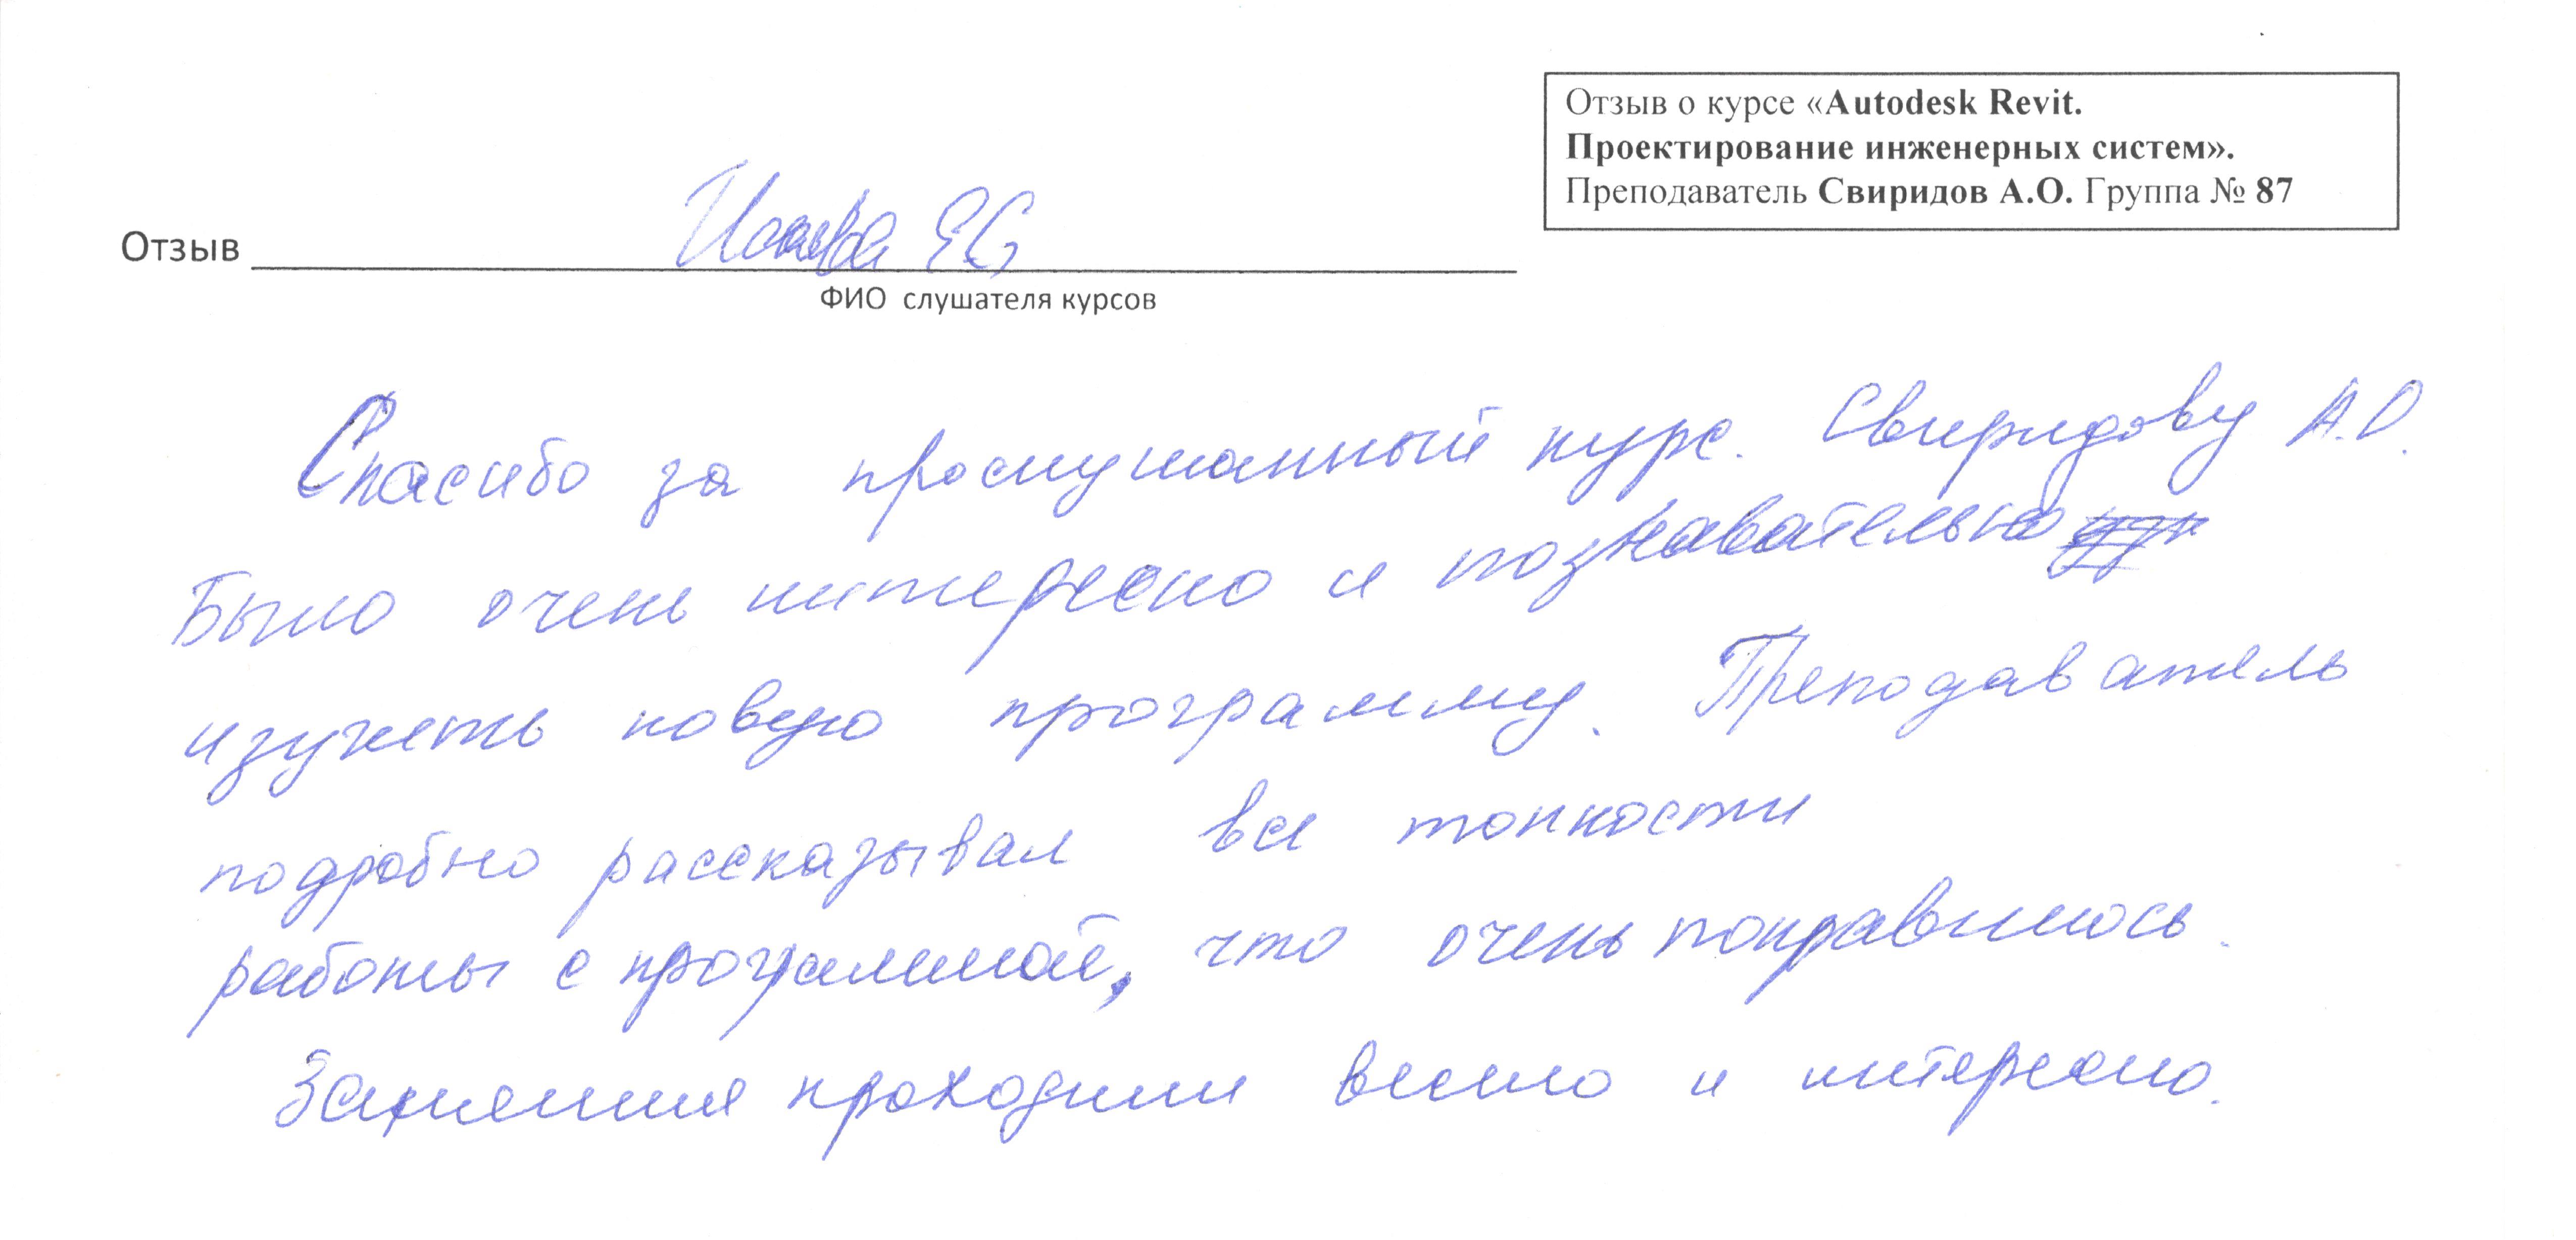 Отзыв о курсе «Autodesk Revit.
Проектирование инженерных систем».
Преподаватель Свиридов А.О. Группа № 87
Отзыв Исаева Е С
ФИО слушателя курсов
Спасибо за прослушанный курс. Свиридову А.О.
Было очень интересно и познавательно
изучить новую программу. Преподаватель
подробно рассказывал все тонкости
работы с программой, что очень понравилось.
Занятия проходили весело и интересно.